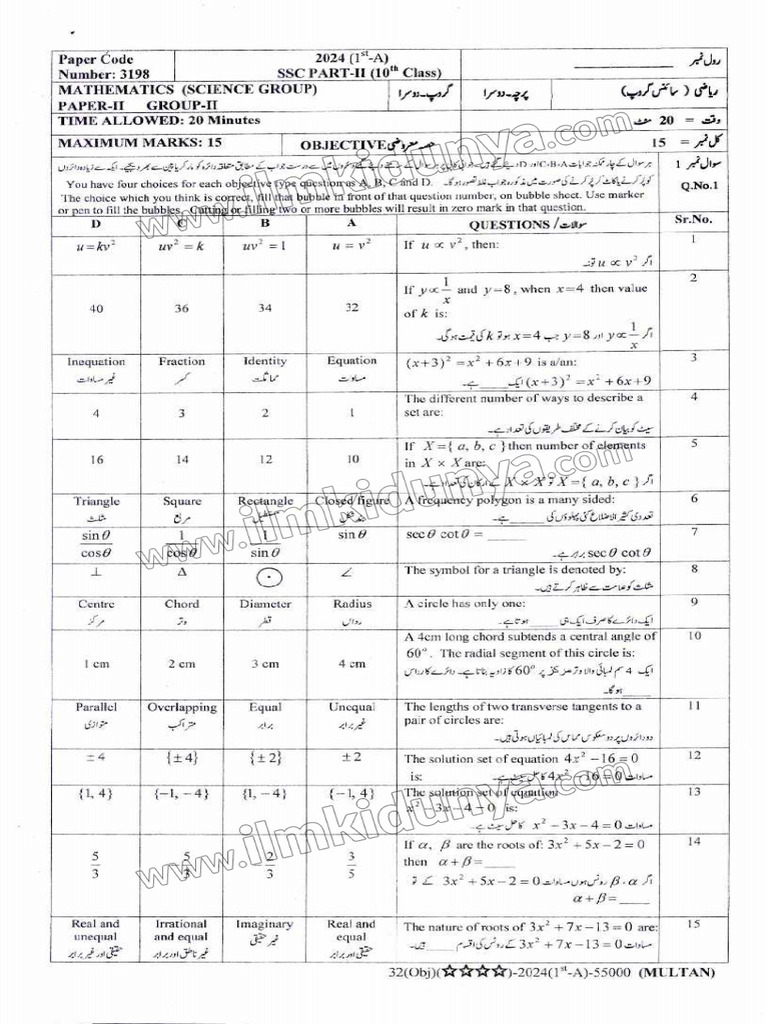 Paper Code
Number: 3198
2024 (1st-A)
SSC PART-II (10th Class)
رول نمبر
MATHEMATICS (SCIENCE GROUP)
PAPER-II GROUP-II
گروپ۔دوسرا
پرچہ۔دوسرا
ریاضی (سائنس گروپ)
TIME ALLOWED: 20 Minutes
وقت = 20 منٹ
MAXIMUM MARKS: 15
OBJECTIVE حصہ معروضی
کل نمبر = 15
سوال نمبر 1
You have four choices for each objective type question as A, B, C and D.
Q.No.1
The choice which you think is correct, fill that bubble in front of that question number, on bubble sheet. Use marker
or pen to fill the bubbles. Cutting or filling two or more bubbles will result in zero mark in that question.
D C B A QUESTIONS / سوالات Sr.No.
u = kv² uv² = k uv² = 1 u = v² If u ∝ v², then: 1
اگر u ∝ v² تو:۔
If y ∝ 1/x and y = 8, when x = 4 then value 2
40 36 34 32 of k is:
اگر y ∝ 1/x اور y = 8 جب x = 4 ہو تو k کی قیمت ہوگی۔
Inequation Fraction Identity Equation (x+3)² = x² + 6x + 9 is a/an: 3
غیر مساوات کسر مماثلت مساوات (x+3)² = x² + 6x + 9 ایک ____ ہے۔
4 3 2 1 The different number of ways to describe a 4
set are:
سیٹ کو بیان کرنے کے مختلف طریقوں کی تعداد ہے۔
16 14 12 10 If X = { a, b, c } then number of elements 5
in X × X are:
اگر X = { a, b, c } تو X × X کے ارکان کی تعداد ہے۔
Triangle Square Rectangle Closed figure A frequency polygon is a many sided: 6
مثلث مربع مستطیل بند شکل تعددی کثیر الاضلاع کئی پہلوؤں کی ____ ہے۔
sin θ/cos θ 1/cos θ 1/sin θ sin θ sec θ cot θ = ____ 7
sec θ cot θ برابر ہے۔
⊥ Δ ⊙ ∠ The symbol for a triangle is denoted by: 8
مثلث کو علامت سے ظاہر کرتے ہیں۔
Centre Chord Diameter Radius A circle has only one: 9
مرکز وتر قطر رداس ایک دائرے کا صرف ایک ہی ____ ہوتا ہے۔
A 4cm long chord subtends a central angle of 10
1 cm 2 cm 3 cm 4 cm 60°. The radial segment of this circle is:
ایک 4 سم لمبائی والا وتر مرکز پر 60° کا زاویہ بناتا ہے۔ دائرے کا رداس
____ ہوگا۔
Parallel Overlapping Equal Unequal The lengths of two transverse tangents to a 11
متوازی متراکب برابر غیر برابر pair of circles are:
دو دائروں پر دو معکوس مماس کی لمبائیاں ہوتی ہیں۔
± 4 {± 4} {± 2} ± 2 The solution set of equation 4x² − 16 = 0 12
is:
مساوات 4x² − 16 = 0 کا حل سیٹ ہے۔
{1, 4} {−1, − 4} {1, − 4} {−1, 4} The solution set of equation 13
x² − 3x − 4 = 0 is:
مساوات x² − 3x − 4 = 0 کا حل سیٹ ہے۔
If α, β are the roots of: 3x² + 5x − 2 = 0 14
then α + β = ____
5/3 3/5
اگر α ، β مساوات 3x² + 5x − 2 = 0 کے
α + β = ____
Real and unequal Irrational and equal Imaginary Real and equal The nature of roots of 3x² + 7x − 13 = 0 are: 15
حقیقی اور غیر برابر غیر ناطق اور برابر غیر حقیقی حقیقی اور برابر 3x² + 7x − 13 = 0 کے روٹس کی اقسام ____ ہیں۔
32(Obj)(☆☆☆☆)-2024(1st-A)-55000 (MULTAN)
www.ilmkidunya.com
www.ilmkidunya.com
www.ilmkidunya.com